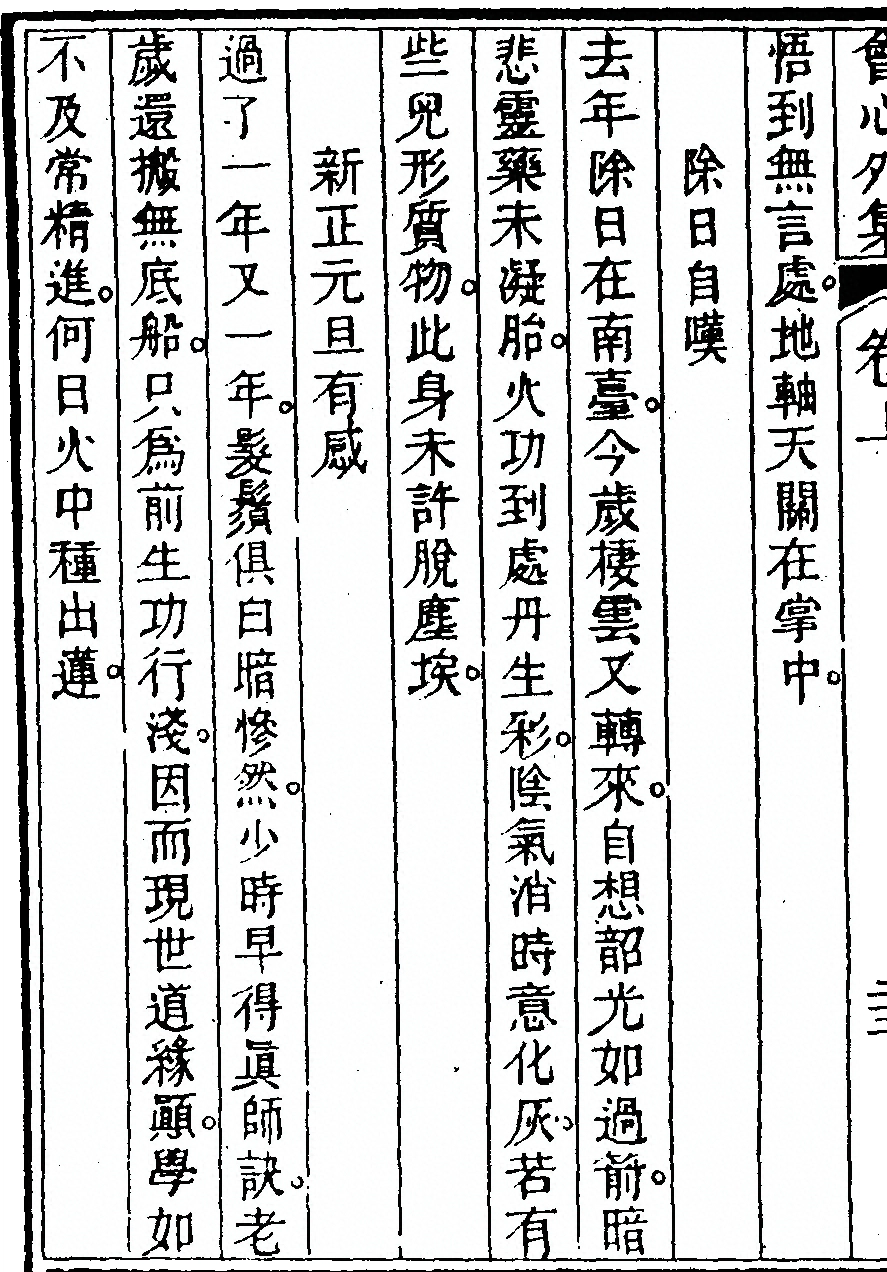 會心外集 卷上
悟到無言處。地軸天關在掌中。
除日自嘆
去年除日在南臺。今歲棲雲又轉來。自想韶光如過箭。暗
悲靈藥未凝胎。火功到處丹生彩。陰氣消時意化灰。若有
些兒形質物。此身未許脫塵埃。
新正元旦有感
過了一年又一年。髮鬚俱白暗慘然。少時早得眞師訣。老
歲還搬無底船。只爲前生功行淺。因而現世道緣顚。學如
不及常精進。何日火中種出蓮。